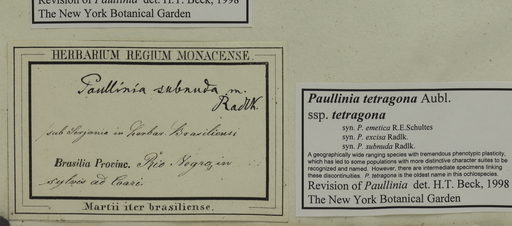 Revision of Paullinia det. H.T. Beck, 1998
The New York Botanical Garden
HERBARIUM REGIUM MONACENSE.
Paullinia subnuda m.
Radlk.
sub Serjania in Herbar. Brasiliensi
Brasilia Provinc. Rio Negro, in
sylvis ad
Martii iter brasiliense.
Paullinia tetragona Aubl.
ssp. tetragona
syn. P. emetica R.E.Schultes
syn. P. excisa Radlk.
syn. P. subnuda Radlk.
A geographically wide ranging species with tremendous phenotypic plasticity,
which has led to some populations with more distinctive character suites to be
recognized and named. However, there are intermediate specimens linking
these discontinuities. P. tetragona is the oldest name in this ochlospecies.
Revision of Paullinia det. H.T. Beck, 1998
The New York Botanical Garden